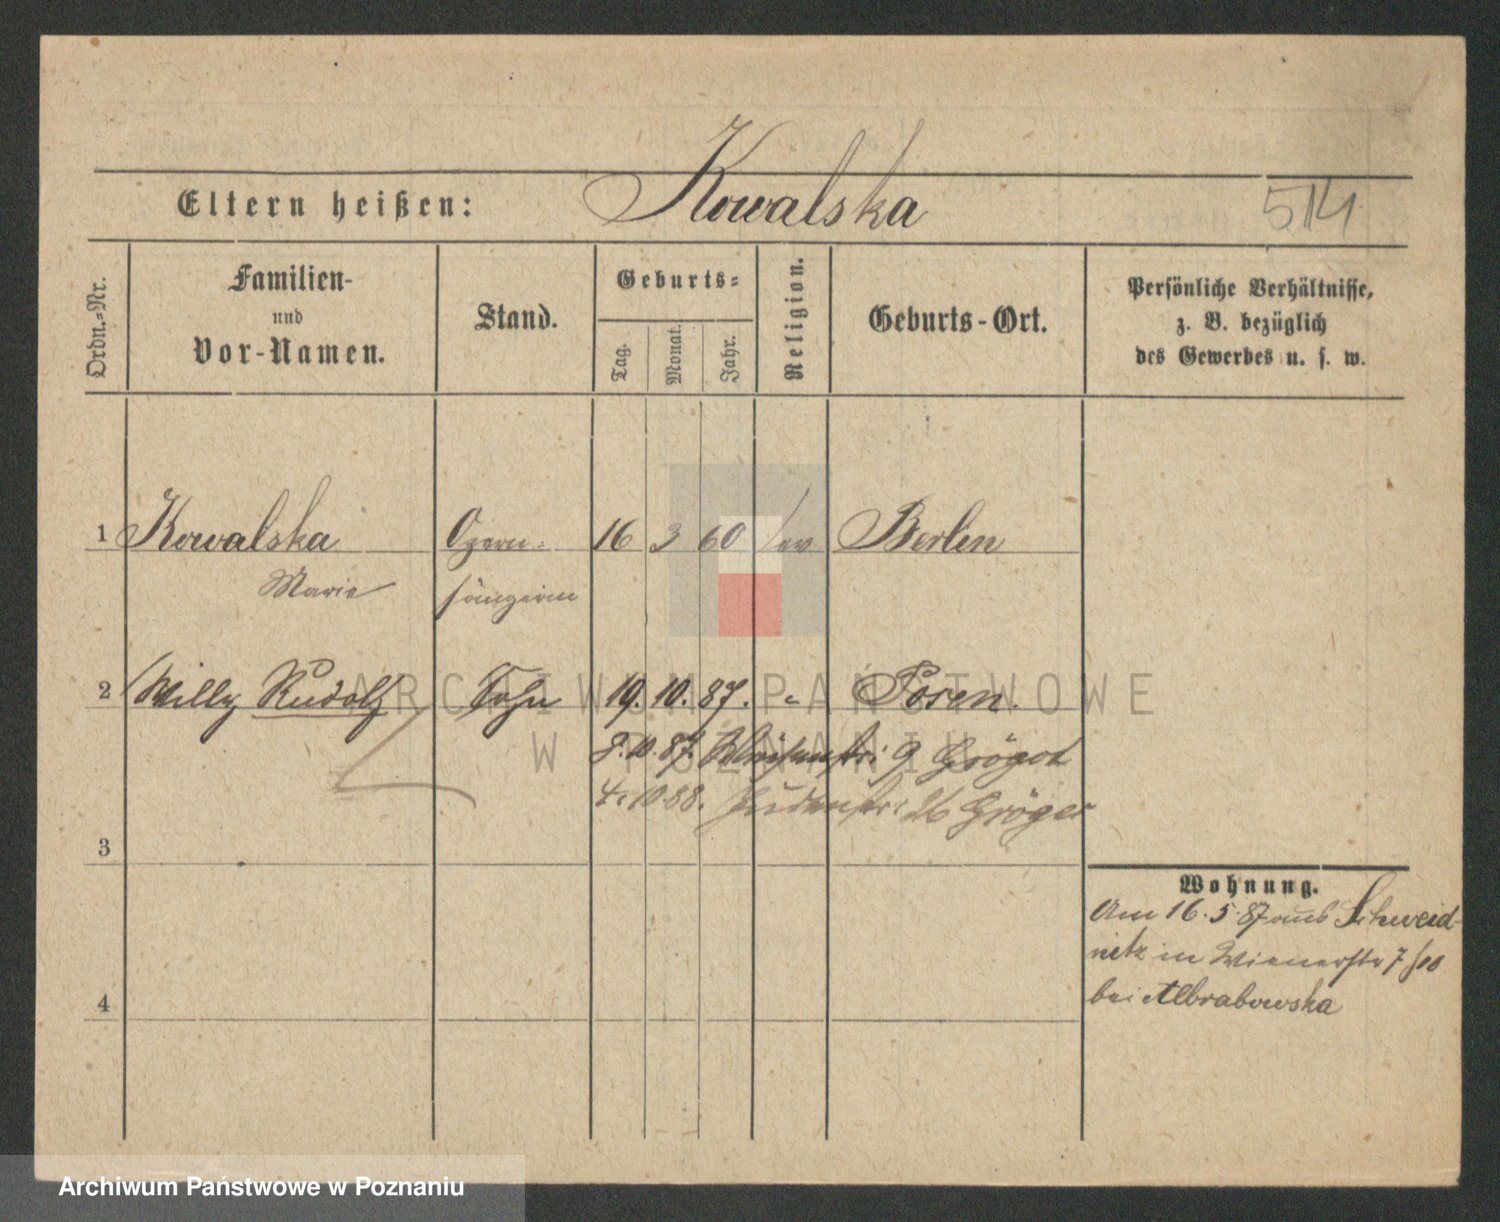 Kowalska
Eltern heißen:
514
Ordn.-Nr.
Familien-
und
Vor-Namen.
Stand.
Geburts-
Tag.
Monat.
Jahr.
Religion.
Geburts-Ort.
Persönliche Verhältnisse,
z. B. bezüglich
des Gewerbes u. s. w.
1 Kowalska Opern- 16 3 60 ev Berlin
Marie sängerin
2 Willy Rudolf Sohn 19. 10. 87. " Posen.
8. 10. 87. 9
4. 10. 88. Judenstr. 26 Gröger
3
Wohnung.
Am 16. 5. 87 aus Schweid-
nitz in Wienerstr 7
bei
4
ARCHIWUM PAŃSTWOWE
W POZNANIU
Archiwum Państwowe w Poznaniu